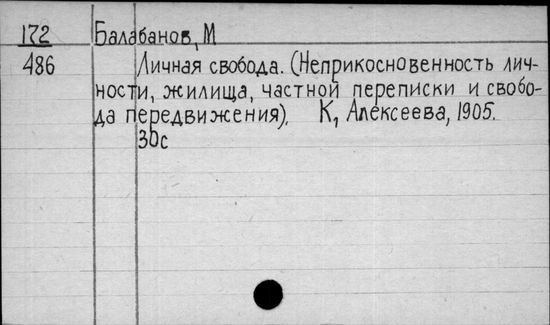 172 Балабанов, М
486 Личная свобода. (Неприкосновенность лич-
ности, жилища, частной переписки и свобо-
да передвижения). К, Алексеева, 1905.
30с